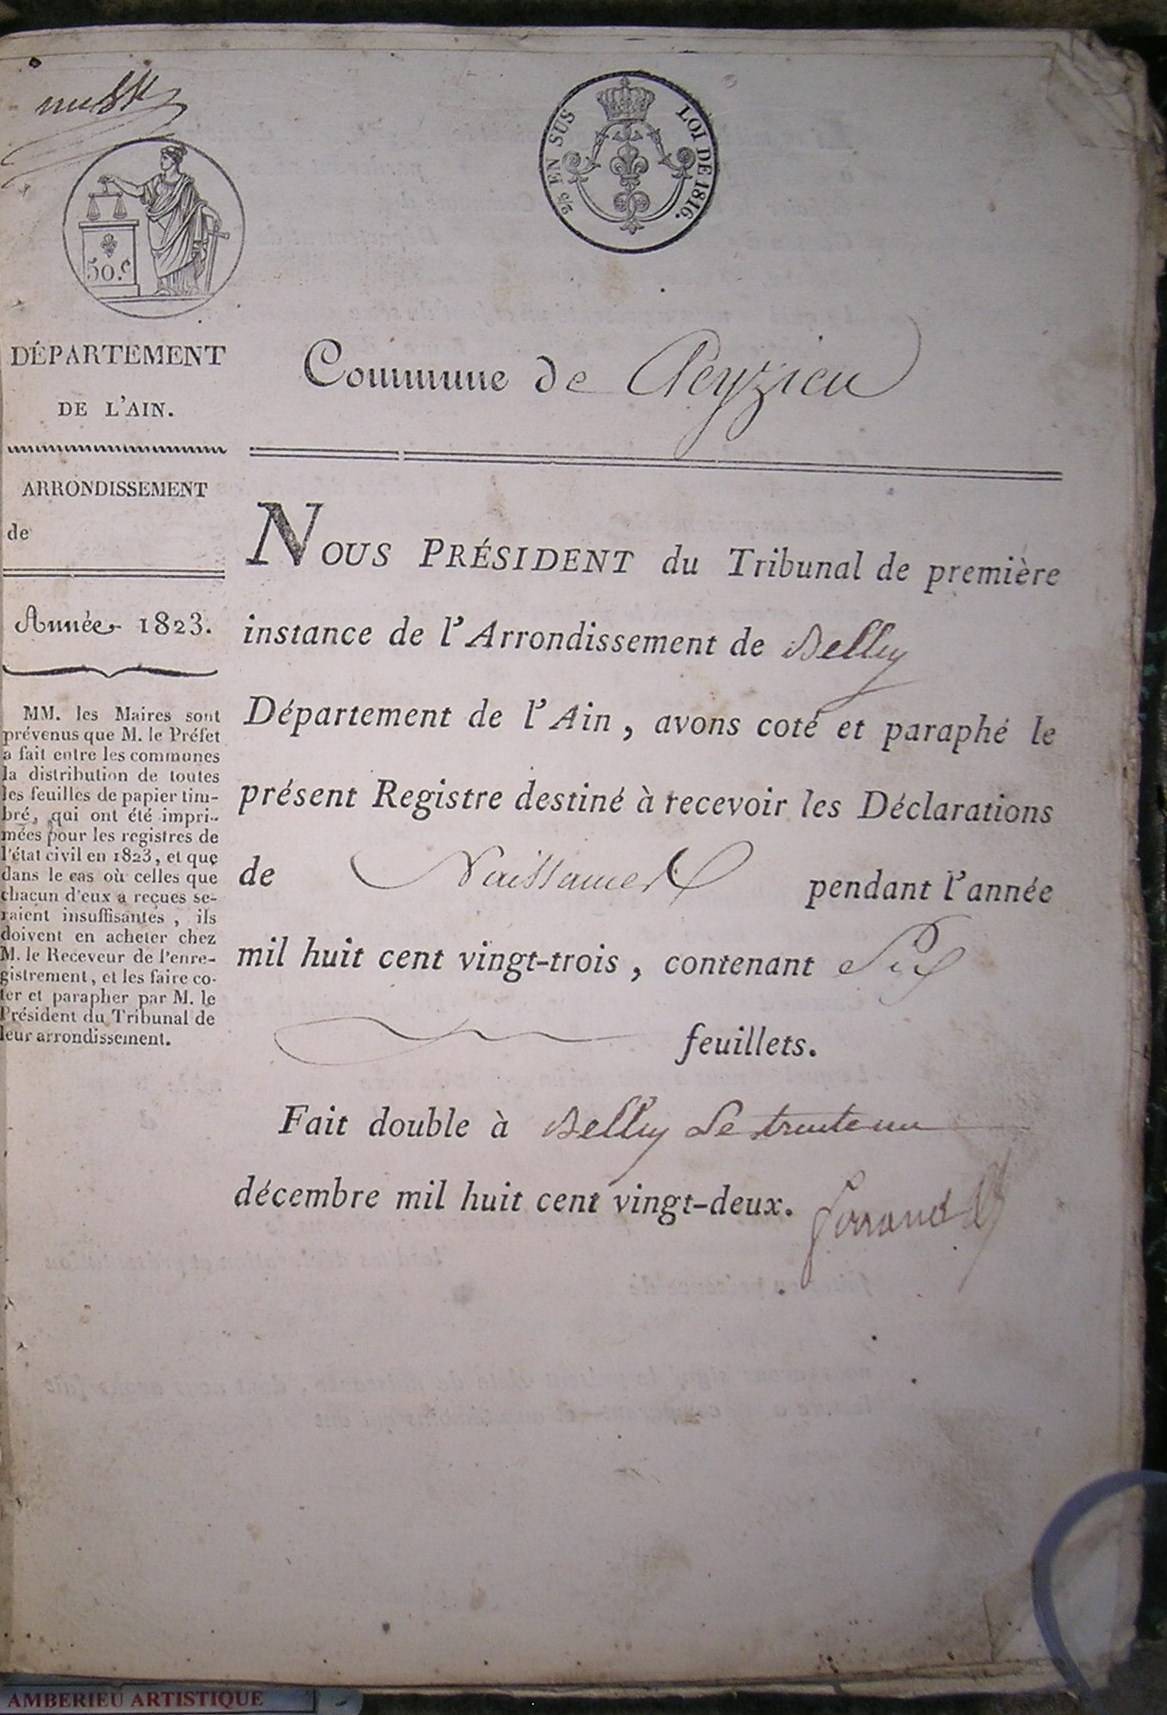 50.c
2/5 EN SUS
LOI DE 1816.
DÉPARTEMENT
DE L'AIN.
Commune de Peyzieu
ARRONDISSEMENT
de
Année 1823.
MM. les Maires sont
prévenus que M. le Préfet
a fait entre les communes
la distribution de toutes
les feuilles de papier tim-
bré, qui ont été impri-
mées pour les registres de
l'état civil en 1823, et que
dans le cas où celles que
chacun d'eux a reçues se-
raient insuffisantes, ils
doivent en acheter chez
M. le Receveur de l'enre-
gistrement, et les faire co-
ter et parapher par M. le
Président du Tribunal de
leur arrondissement.
NOUS PRÉSIDENT du Tribunal de première
instance de l'Arrondissement de Belley
Département de l'Ain, avons coté et paraphé le
présent Registre destiné à recevoir les Déclarations
de Naissances pendant l'année
mil huit cent vingt-trois, contenant Six
feuillets.
Fait double à Belley Le trente un
décembre mil huit cent vingt-deux.
AMBERIEU ARTISTIQUE